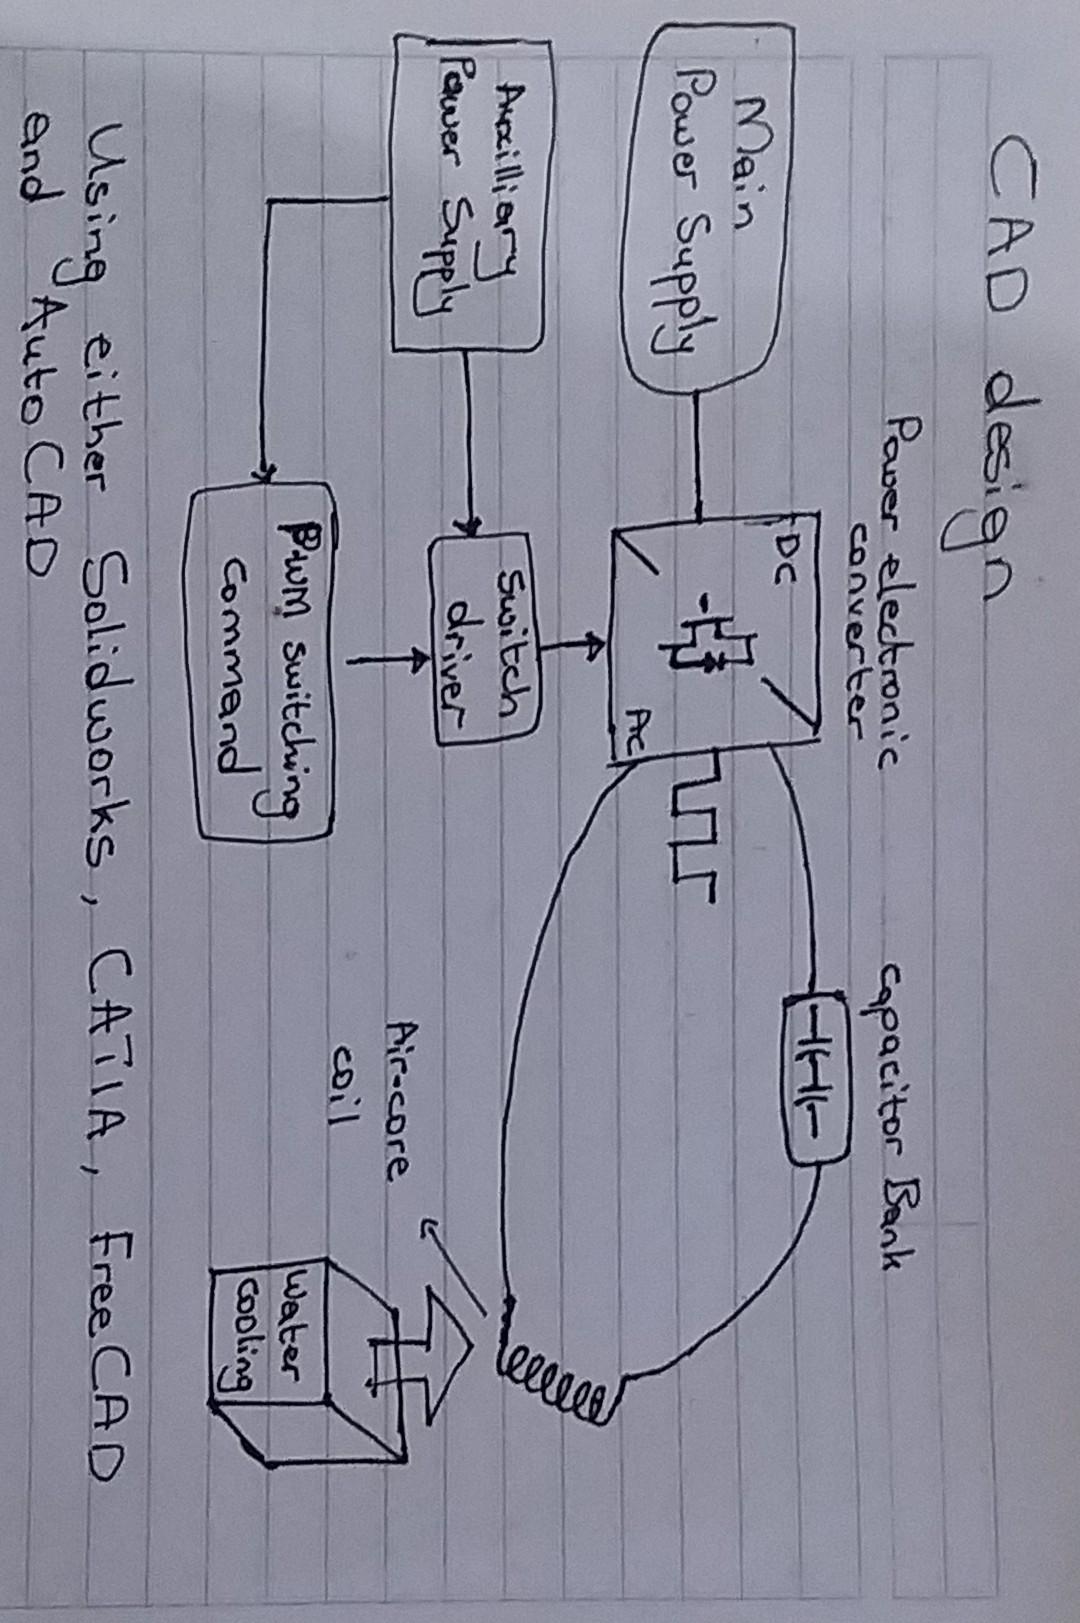 CAD design
Power electronic
converter
Capacitor Bank
Main
Power Supply
DC
AC
Auxilliary
Power Supply
Switch
driver
PWM switching
Command
Air-core
coil
Water
cooling
Using either Solidworks, CATIA, FreeCAD
and AutoCAD